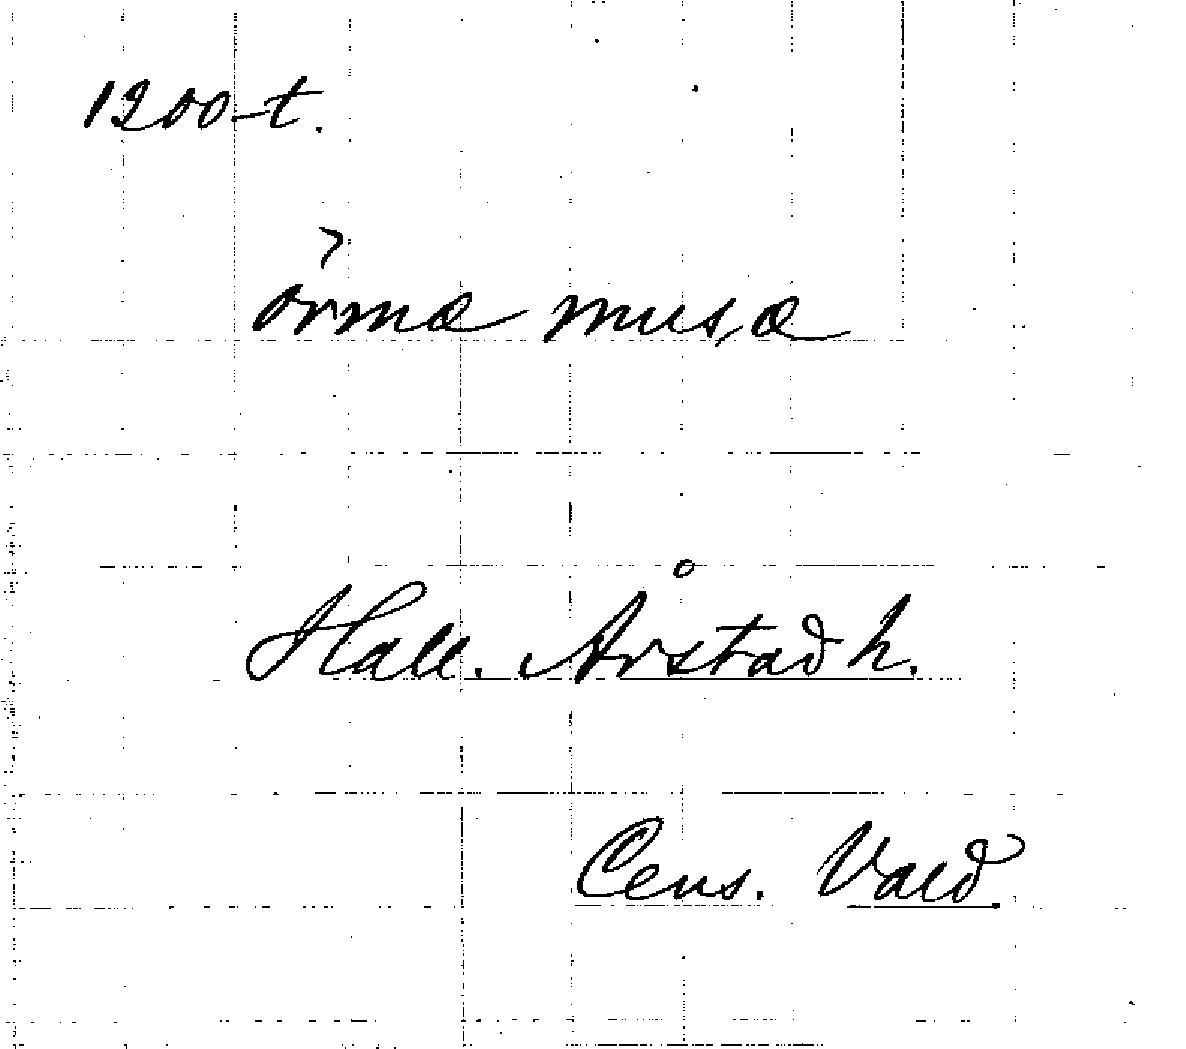 1200-t.
örmæ musæ
Hall. Årstad h.
Cens. Vald.